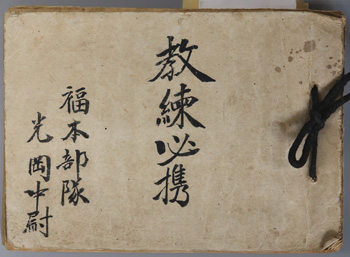 教練必携
福本部隊
光岡中尉